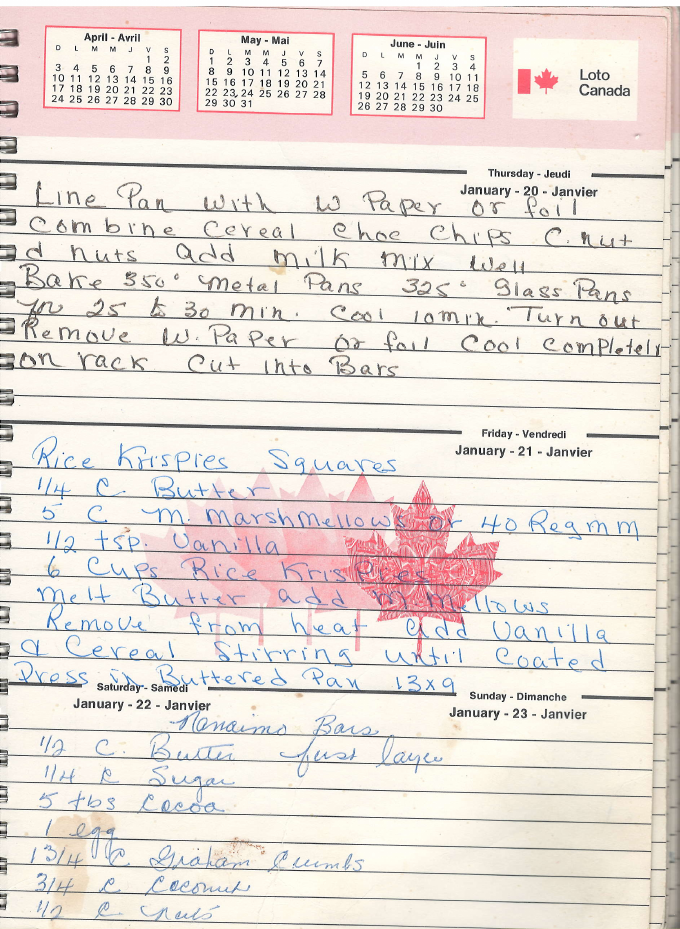 April - Avril
D L M M J V S
1 2
3 4 5 6 7 8 9
10 11 12 13 14 15 16
17 18 19 20 21 22 23
24 25 26 27 28 29 30
May - Mai
D L M M J V S
1 2 3 4 5 6 7
8 9 10 11 12 13 14
15 16 17 18 19 20 21
22 23 24 25 26 27 28
29 30 31
June - Juin
D L M M J V S
1 2 3 4
5 6 7 8 9 10 11
12 13 14 15 16 17 18
19 20 21 22 23 24 25
26 27 28 29 30
Loto
Canada
Thursday - Jeudi
January - 20 - Janvier
Line Pan with W Paper or foil
Combine Cereal Choc Chips C. nut
d nuts add milk mix well
Bake 350° metal Pans 325° Glass Pans
for 25 to 30 min. Cool 10min. Turn out
Remove W. Paper or foil Cool completely
on rack Cut into Bars
Friday - Vendredi
January - 21 - Janvier
Rice Krispies Squares
1/4 C. Butter
5 C. M. Marshmellows or 40 Reg mm
1/2 tsp. Vanilla
6 Cups Rice Krispies
Melt Butter add M. Mellows
Remove from heat add Vanilla
& Cereal Stirring until Coated
Press in Buttered Pan 13x9
Saturday - Samedi
January - 22 - Janvier
Sunday - Dimanche
January - 23 - Janvier
Nanaimo Bars
1/2 C. Butter first layer
1/4 C Sugar
5 tbs Cocoa
1 egg
1 3/4 C. Graham Crumbs
3/4 C Coconut
1/2 C nuts